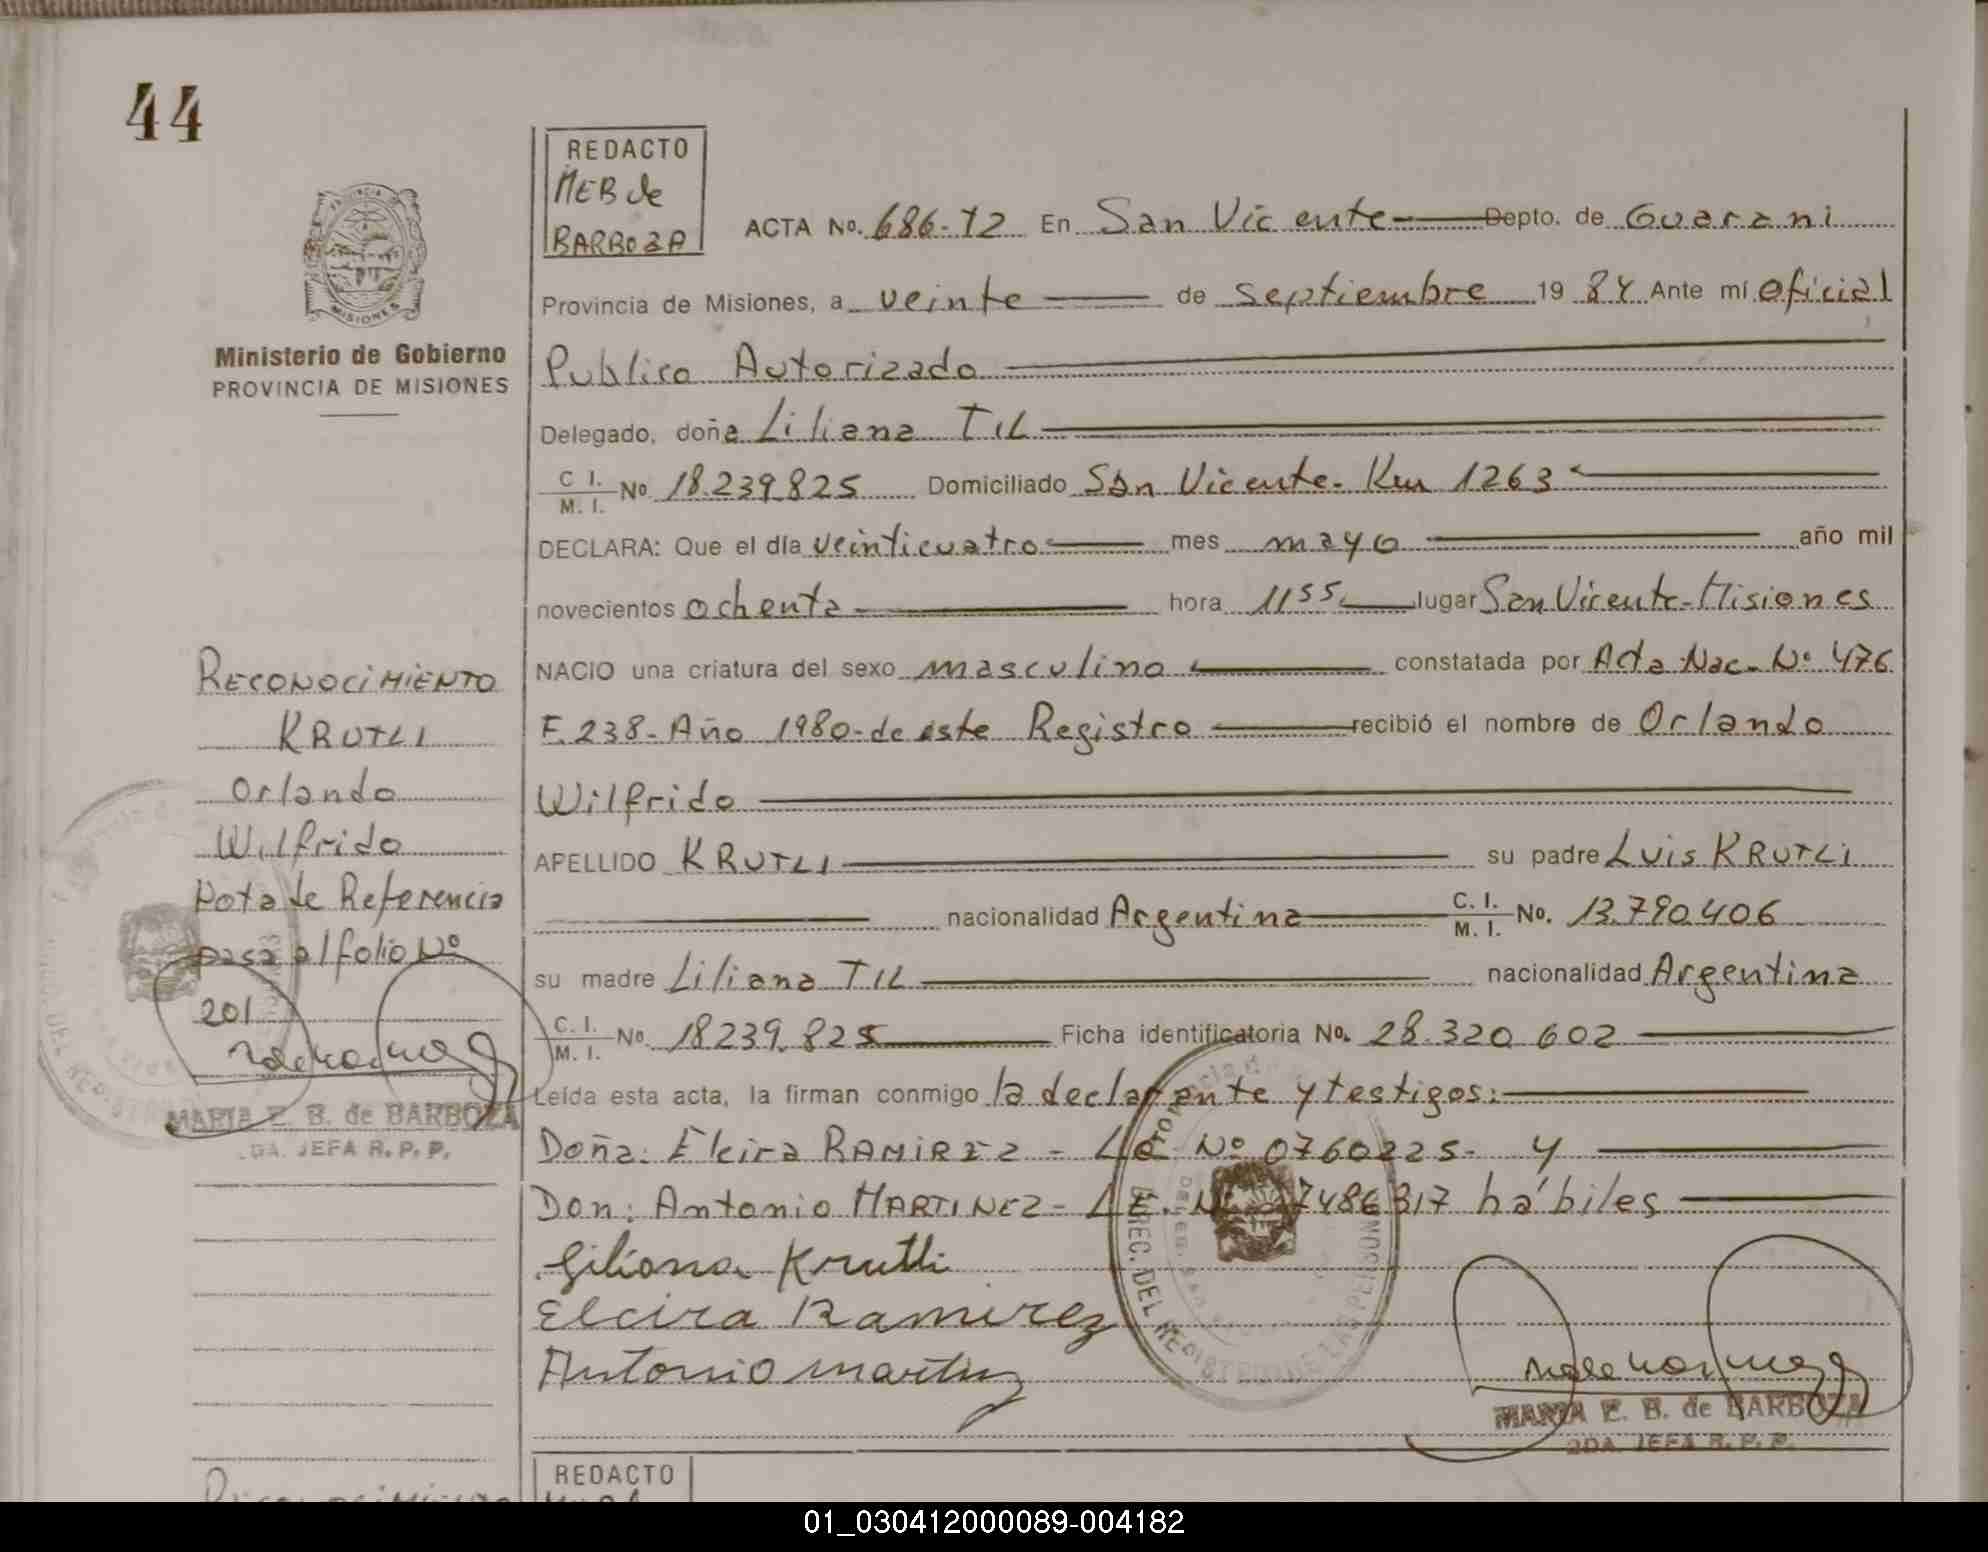 44
REDACTO
MEB de
BARBOZA
ACTA No. 686-T2 En San Vicente Depto. de Guarani
PROVINCIA
MISIONES
Ministerio de Gobierno
PROVINCIA DE MISIONES
Provincia de Misiones, a veinte de septiembre 19 84 Ante mí oficial
Publico Autorizado
Delegado, doña Liliana TIL
C. I.
M. I. No 18.239.825 Domiciliado San Vicente. Km 1263
DECLARA: Que el día veinticuatro mes mayo año mil
novecientos ochenta hora 11 55 lugar San Vicente-Misiones
NACIO una criatura del sexo masculino constatada por Acta Nac. Nº 476
F. 238- Año 1980- de este Registro recibió el nombre de Orlando
Wilfrido
APELLIDO KRUTLI su padre Luis KRUTLI
nacionalidad Argentina C. I.
M. I. No. 13.790.406
su madre Liliana TIL nacionalidad Argentina
C. I.
M. I. No. 18239.825 Ficha identificatoria No. 28.320.602
Leída esta acta, la firman conmigo la declarante y testigos:
Doña: Elcira RAMIREZ - LC Nº 0760225- y
Don: Antonio MARTINEZ - L.E. 7486317 hábiles
Liliana Krutli
Elcira Ramirez
Antonio
MARIA E. B. de BARBOZA
2DA. JEFA R. P. P.
RECONOCIMIENTO
KRUTLI
Orlando
Wilfrido
Nota de Referencia
pasa al folio Nº
201
MARIA E. B. de BARBOZA
DA. JEFA R. P. P.
REDACTO
01_030412000089-004182